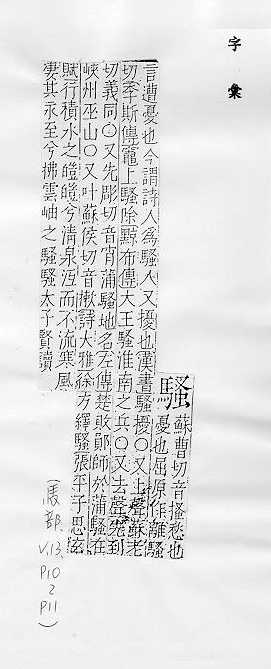 字彙
騷
蘇曹切音搔愁也
憂也屈原作離騷
言遭憂也今謂詩人為騷人又擾也漢書騷擾○又上聲蘇老
切李斯傳竈上騷除黥布傳大王騷淮南之兵○又去聲先到
切義同○又先彫切音宵蒲騷地名左傳楚敗鄖師於蒲騷在
峽州巫山○又叶蘇侯切音漱詩大雅徐方繹騷張平子思玄
賦行積水之皚皚兮清泉沍而不流寒風
淒其永至兮拂雲岫之騷騷太子賢讀
(馬部 V.13. P10 2 P11)